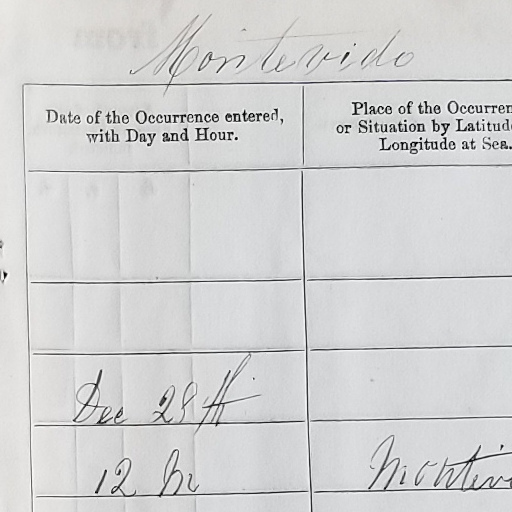 Montevido
Date of the Occurrence entered,
with Day and Hour.
Place of the Occurren
or Situation by Latitud
Longitude at Sea.
Dec 28th
12 M
Montiv